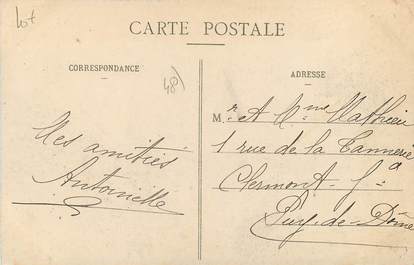 lot
CARTE POSTALE
CORRESPONDANCE
48)
ADRESSE
Mes amitiés
Antoinette
Mr et Mme Mathieu
1 rue de la Tannerie
à
Clermont-Fd
Puy-de-Dôme